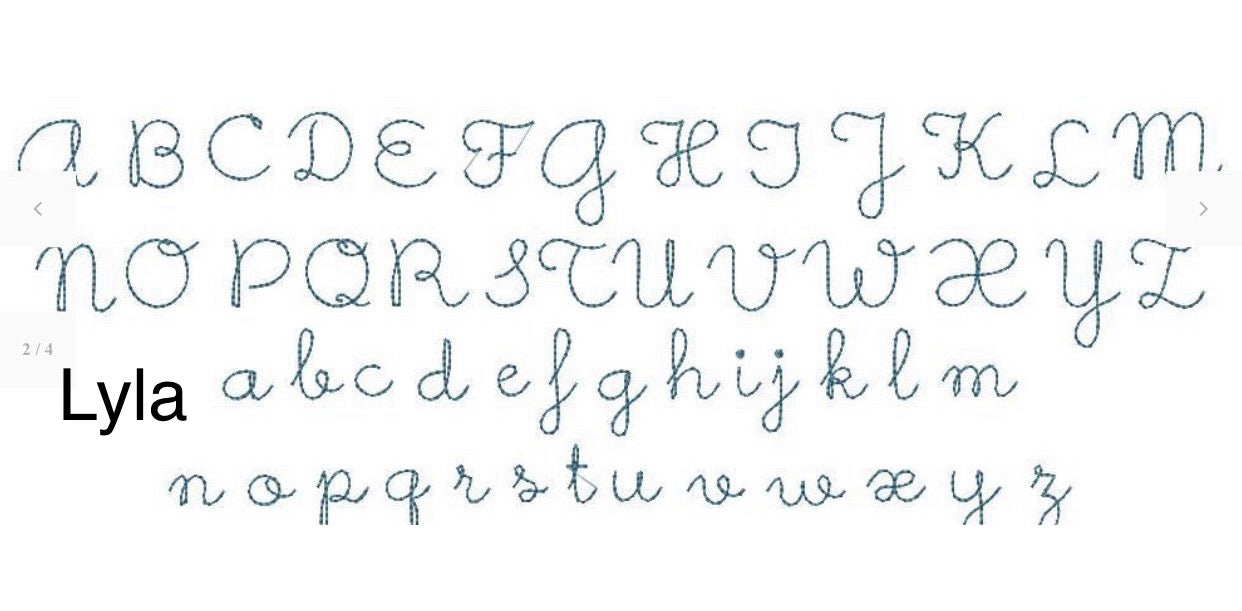 A B C D E F G H I J K L M
N O P Q R S T U V W X Y Z
2 / 4
a b c d e f g h i j k l m
Lyla
n o p q r s t u v w x y z